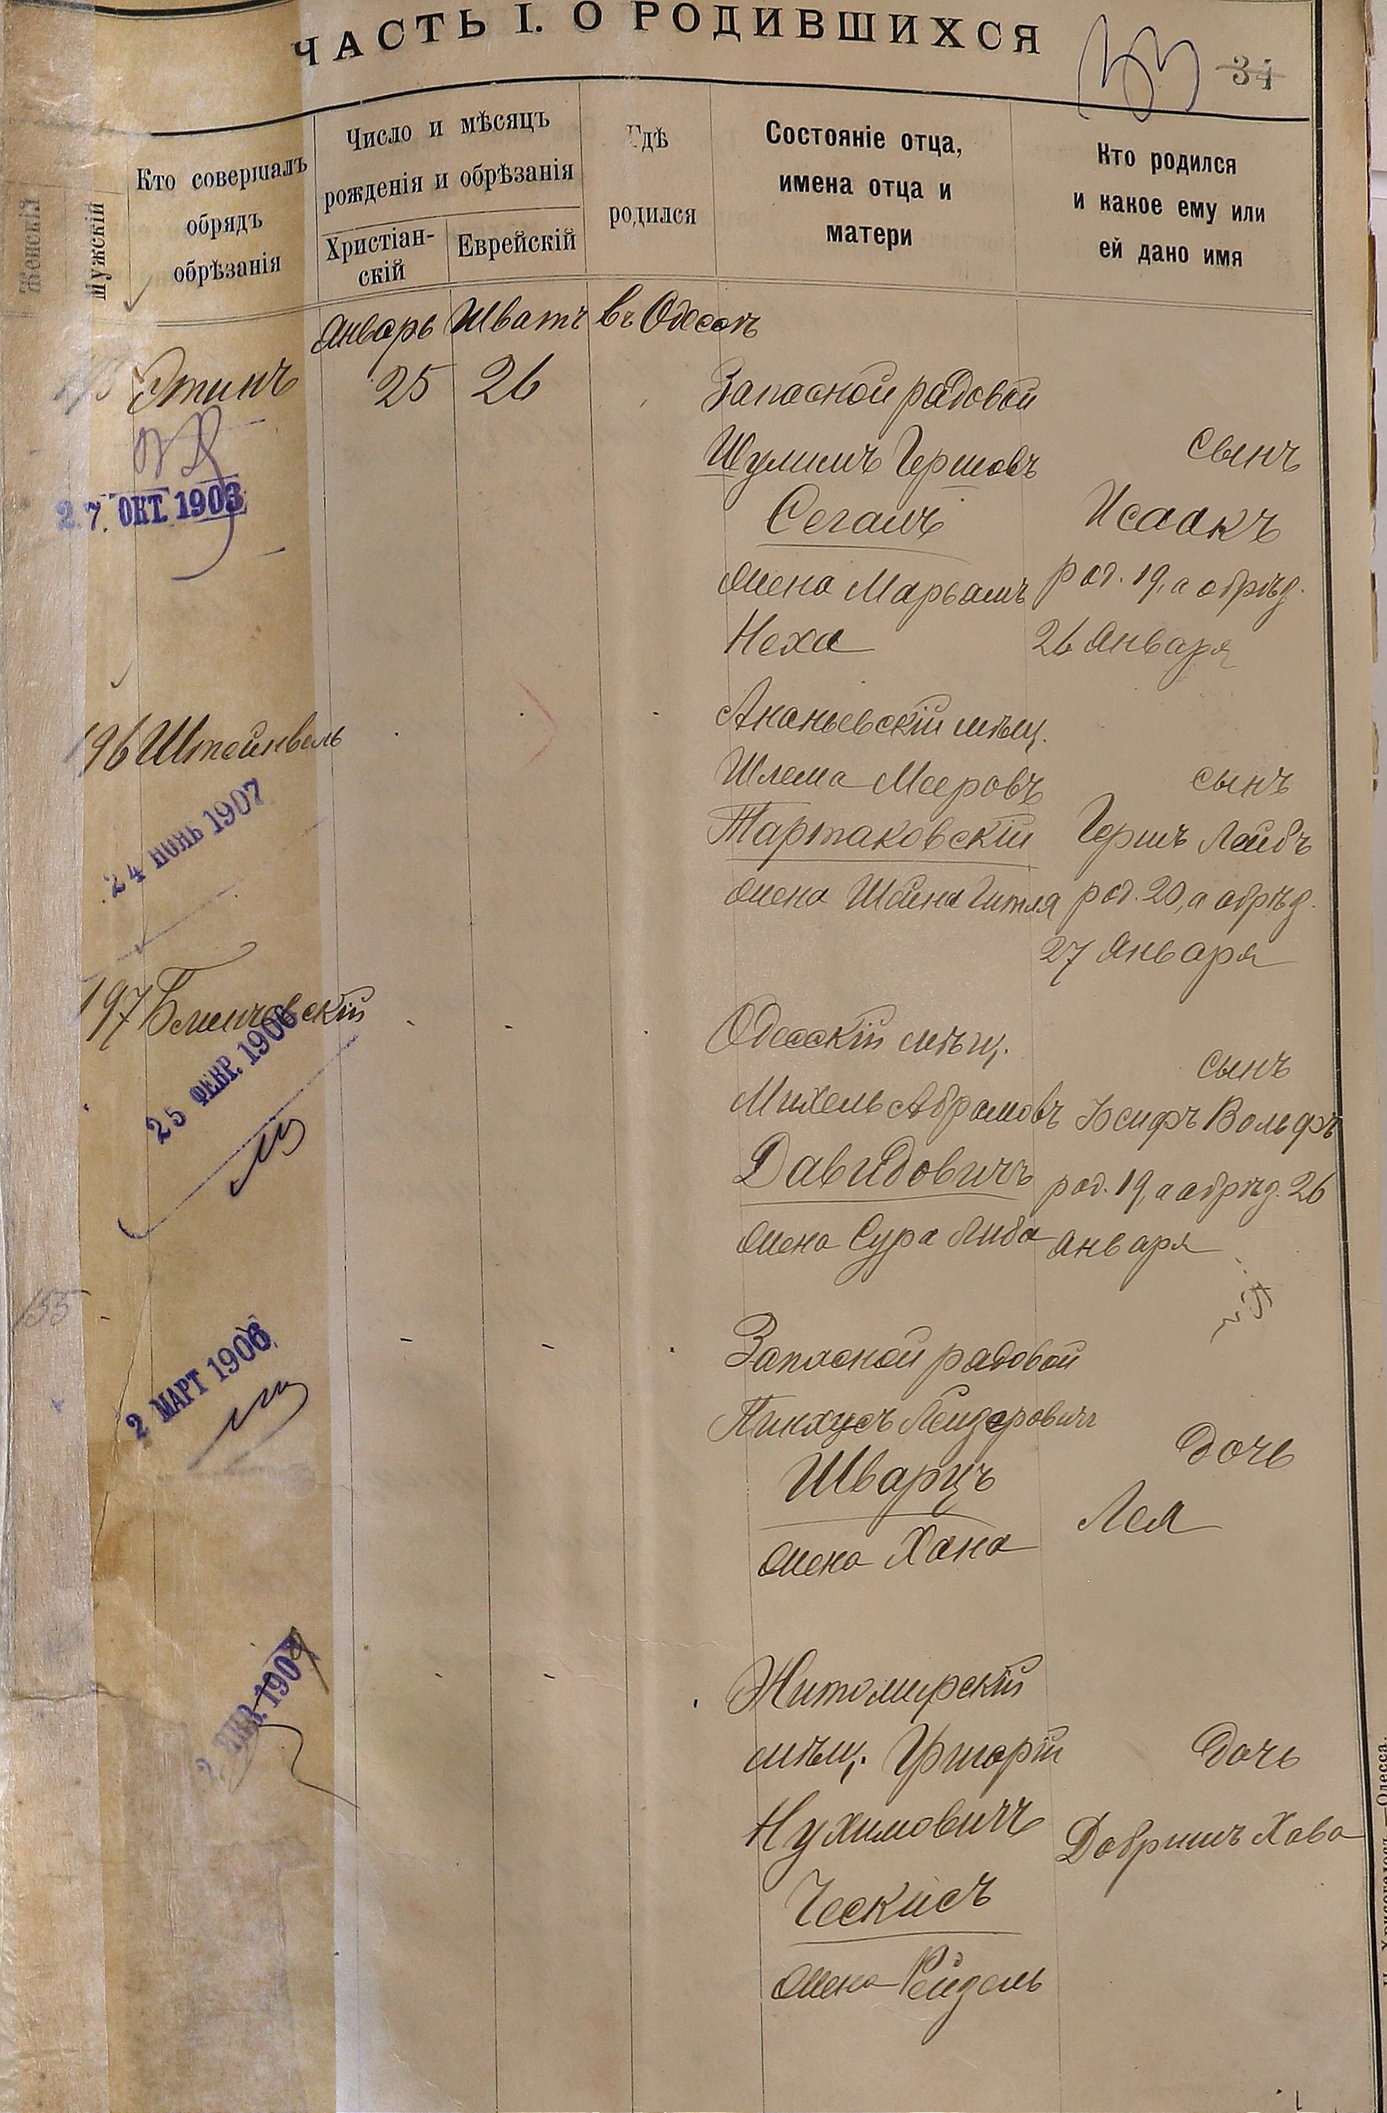 ЧАСТЬ I. О РОДИВШИХСЯ
34
Женскій
Мужскій
Кто совершалъ
обрядъ
обрѣзанія
Число и мѣсяцъ
рожденія и обрѣзанія
Христіан-
скій
Еврейскій
Гдѣ
родился
Состояніе отца,
имена отца и
матери
Кто родился
и какое ему или
ей дано имя
Январь Шватъ въ Одессѣ
Этинъ 25 26
27. ОКТ. 1903
Запасной рядовой
Шулимъ Гершовъ
Сегалъ
жена Марьамъ
Неха
сынъ
Исаакъ
род. 19, а обрѣз.
26 Января
196 Штейнвель
24 ІЮНЬ 1907
Ананьевскій мѣщ.
Шлема Мееровъ
Тартаковскій
жена Шейна Гитля
сынъ
Гершъ Лейбъ
род. 20, а обрѣз.
27 Января
197
25 ФЕВР. 1906
Одесскій мѣщ.
Михель Абрамовъ
Давидовичъ
жена Сура Либа
сынъ
Іосифъ Вольфъ
род. 19, а обрѣз. 26
Января
155
2 МАРТ 1906
Запасной рядовой
Пинхусъ Лейзеровичъ
Шварцъ
жена Хана
дочь
Лея
Житомирскій
мѣщ. Григорій
Нухимовичъ
Ческисъ
жена Рейзель
дочь
Добришъ Хава
Одесса.